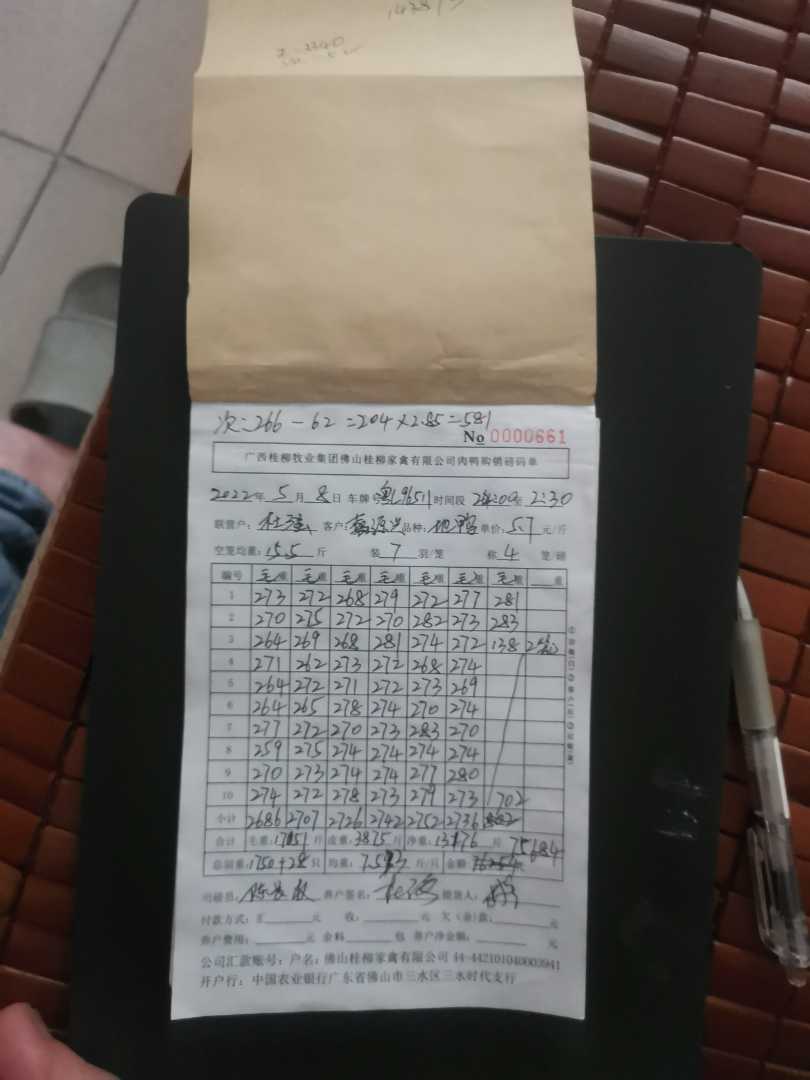 2340
次:266-62=204×2.85=581
No 0000661
广西桂柳牧业集团佛山桂柳家禽有限公司肉鸭购销磅码单
2022年 5 月 8 日 车牌号粤L96511 时间段 24:00至 2:30
联营户: 客户: 源兴 品种: 单价:5.7 元/斤
空笼均重:15.5 斤 装 7 羽/笼 称 4 笼/磅
编号 毛重 毛重 毛重 毛重 毛重 毛重 毛重 重
1 273 272 268 279 272 277 281
2 270 275 272 270 282 273 283
3 264 269 268 281 274 272 138 2笼
4 271 262 273 272 268 274
5 264 272 271 272 273 269
6 264 265 278 274 270 274
7 277 272 270 273 283 270
8 259 275 274 274 274 274
9 270 273 274 274 277 280
10 274 272 278 273 279 273 702
小计 2686 2707 2726 2742 2752 2736
合计 毛重:17051斤 皮重:3875斤 净重:13176 斤 75684
总羽重:1750+28只 均重: 斤/只 金额
司磅员: 养户签名: 提货人:
付款方式:£ 元 收: 元 欠(余)款: 元
养户费用: 元 余料 包 养户净金额: 元
公司汇款账号:户名:佛山桂柳家禽有限公司 44-442101040003941
开户行:中国农业银行广东省佛山市三水区三水时代支行